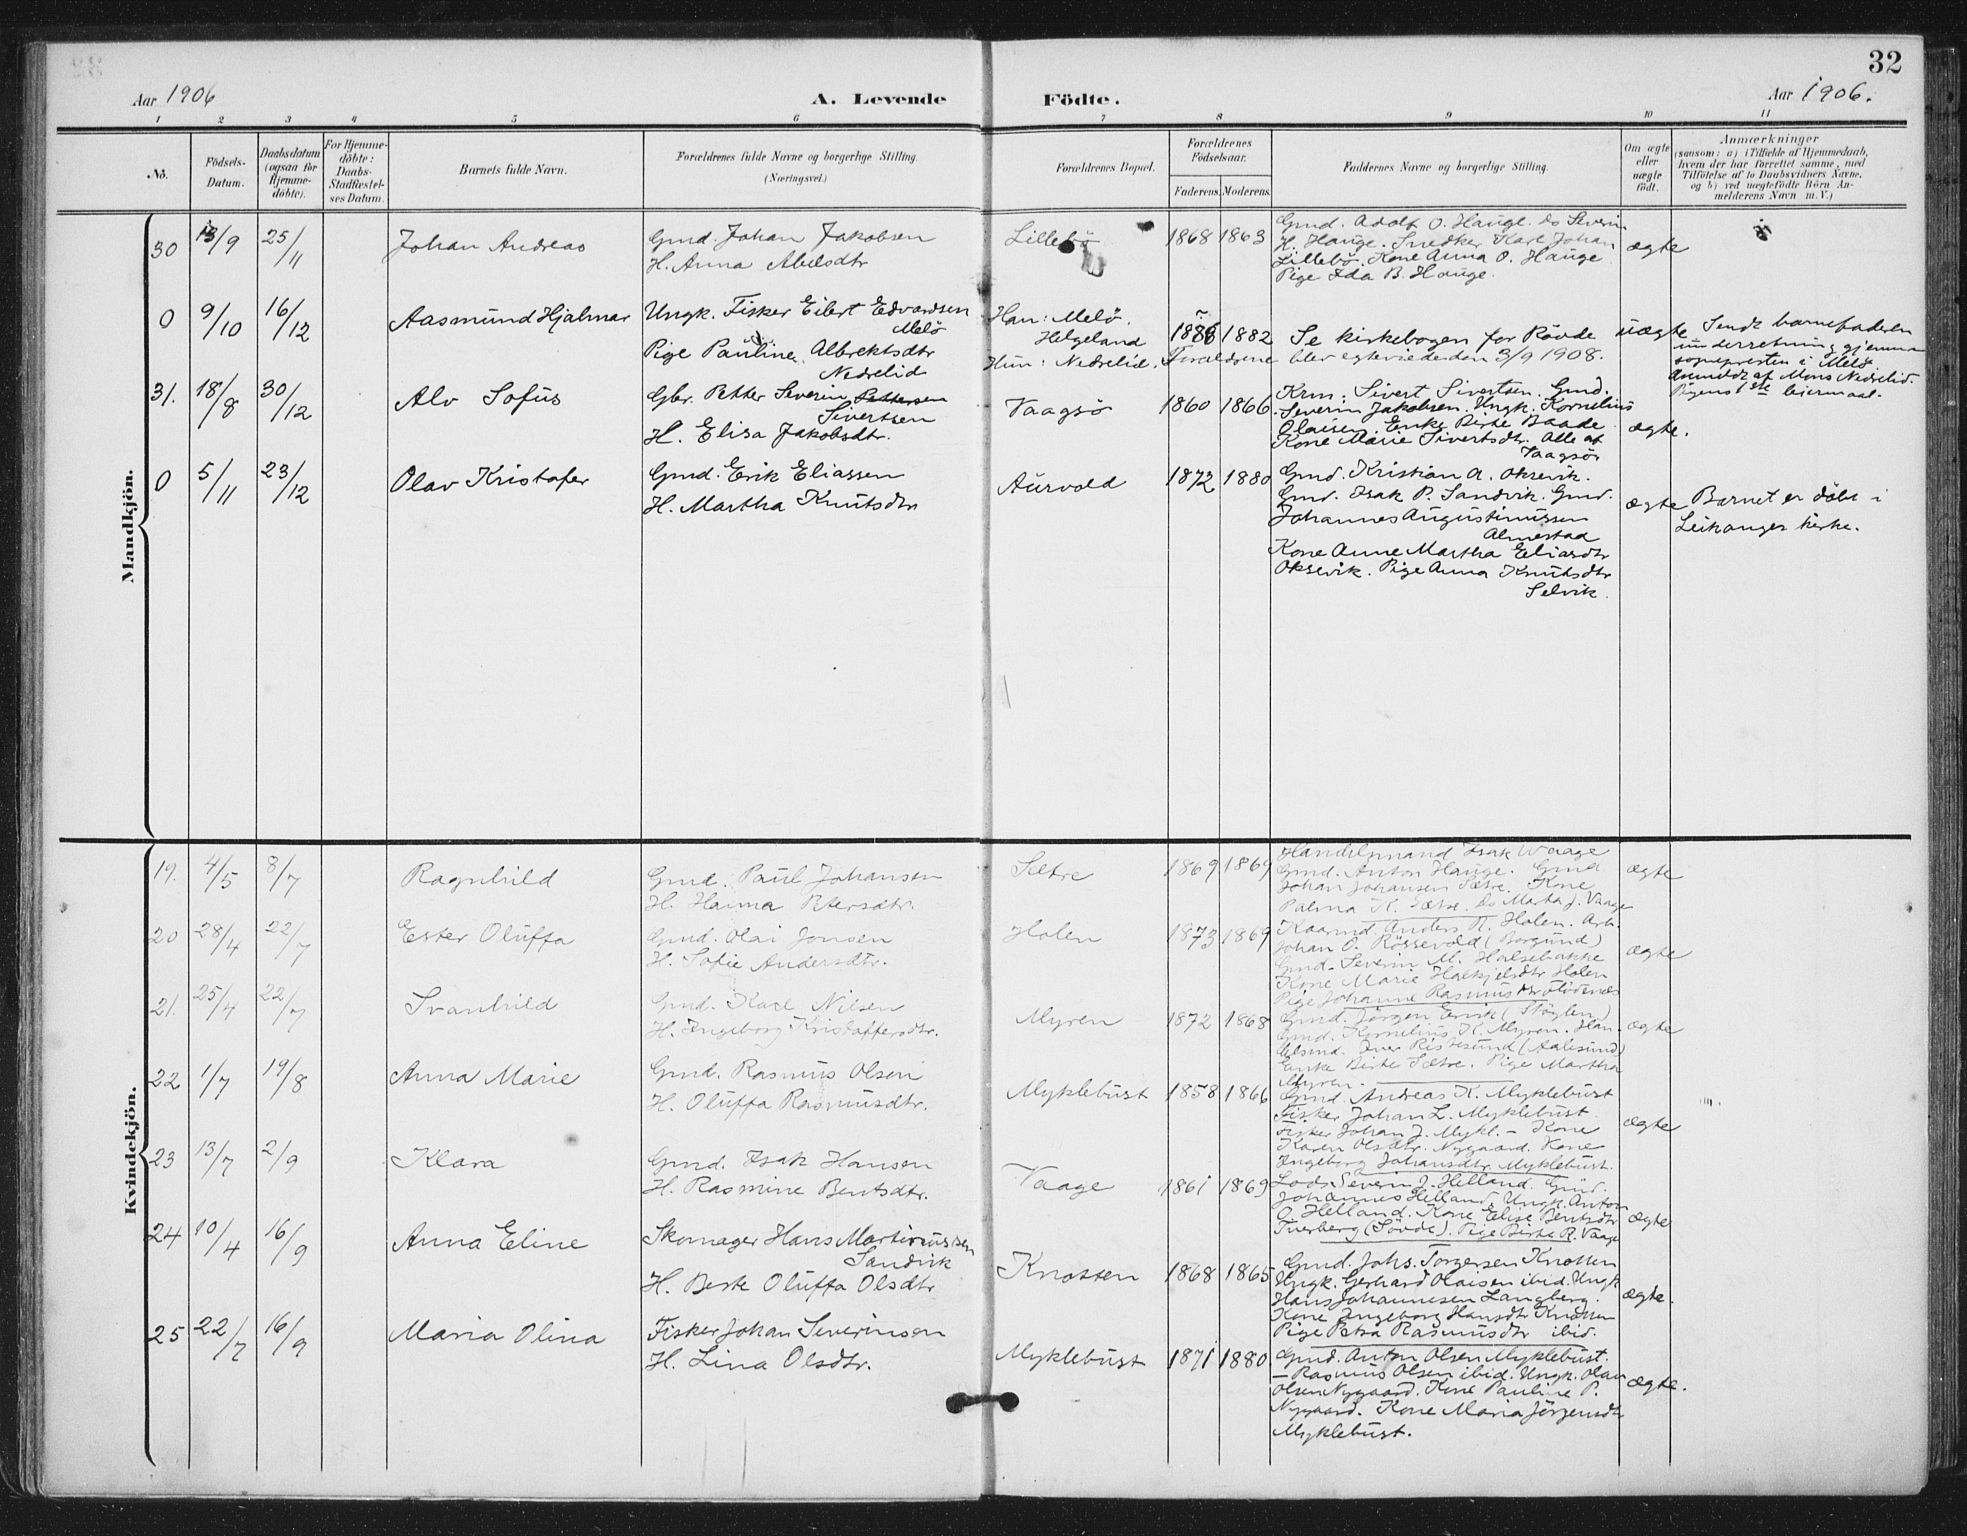 32
Aar 1906
A. Levende
Födte.
Aar 1906.
1 2 3 4 5 6 7 8 9 10 11
No.
Födsels-Datum.
Daabsdatum (ogsaa for Hjemmedöbte).
For Hjemmedöbte: Daabs-Stadfæstelses Datum.
Barnets fulde Navn.
Forældrenes fulde Navne og borgerlige Stilling.
(Næringsvei.)
Forældrenes Bopæl.
Forældrenes Födselsaar.
Faderens. Moderens.
Faddernes Navne og borgerlige Stilling.
Om ægte eller uægte födt.
Anmærkninger
(saasom: a) i Tilfælde af Hjemmedaab,
hvem der har forrettet samme, med
Tilföielse af to Daabsvidners Navne,
og b) ved uægtefödte Börn An-
melderens Navn m. V.)
Mandkjön.
30 13/9 25/11 Johan Andreas
Gmd. Johan Jakobsen
H. Anna Abelsdtr
Lillebö 1868 1863
Gmd. Adolf O. Hauge. Do Severin
H. Hauge. Snedker Karl Johan
Lillebö. Kone Anna O. Hauge
Pige Ida B. Hauge.
ægte
0 9/10 16/12 Aasmund Hjalmar
Ungk. Fisker Eilert Edvardsen
Melö
Pige Pauline Albrektsdtr
Nedrelid
Han: Melö.
Helgeland
Hun: Nedrelid.
1886 1882
Se kirkebogen for Rövde
Forældrene blev egteviede den 3/9 1908.
uægte
Sendt barnefaderen
underretning gjennem
sognepresten i Melö
Anmeldt af Mons Nedrelid.
Pigens 1ste leiermaal.
31. 18/8 30/12 Alv Sofus
Gbr. Petter Severin Pettersen
Sivertsen
H. Elisa Jakobsdtr.
Vaagsö 1860 1866
Krm. Sivert Sivertsen. Gmd.
Severin Jakobsen. Ungk. Kornelius
Olaisen. Enke Birte Baade
Kone Marie Sivertsdtr. Alle af
Vaagsö
ægte.
0 5/11 23/12 Olav Kristofer
Gmd. Erik Eliassen
H. Martha Knutsdtr
Aurvold 1872 1880
Gmd. Kristian A. Oksevik.
Gmd. Isak P. Sandvik. Gmd.
Johannes Augustinussen
Almestad
Kone Anne Martha Eliasdtr
Oksevik. Pige Anna Knutsdtr
Selvik.
ægte
Barnet er döbt i
Leikanger kirke.
Kvindekjön.
19. 4/5 8/7 Ragnhild
Gmd. Paul Johansen
H. Hanna Petersdtr.
Sætre 1869 1869
Handelsmand Isak Waage
Gmd. Anton Hauge. Gmd
Johan Johansen Sætre. Kone
Palma K. Sætre. Do Marta J. Vaage
ægte
20 28/4 22/7 Ester Oluffa
Gmd. Olai Jonsen
H. Sofie Andersdtr.
Holen 1873 1869
Kaarmd. Anders N. Holen. Arb.
Johan O. Rössevold (Borgund)
Gmd. Severin M. Halsebakke
Kone Marie Halkjelsdtr Holen
Pige Johanne Rasmusdtr
ægte
21. 25/4 22/7 Svanhild
Gmd. Karl Nilsen
H. Ingeborg Kristoffersdtr.
Myren 1872 1868
Gmd. Jörgen Erik (Stöylen)
Gmd. Kornelius K. Myren. Han-
delsmd. Iver Ristesund (Aalesund)
Enke Birte Sætre. Pige Martha
Myren.
ægte
22 1/7 19/8 Anna Marie
Gmd. Rasmus Olsen
H. Oluffa Rasmusdtr.
Myklebust 1858 1866
Gmd. Andreas K. Myklebust
Fisker Johan L. Myklebust
Fisker Johan J. Mykl. – Kone
Karen Olsdtr. Nygaard. Kone
Ingeborg Johansdtr Myklebust.
ægte
23 13/7 2/9 Klara
Gmd. Isak Hansen
H. Rasmine Bentsdtr.
Vaage 1861 1869
Lods Severin J. Helland. Gmd.
Johannes Helland. Ungk. Anton
O. Helland. Kone Elise Bentsdtr
Tverberg (Sövde). Pige Birte R. Vaage
ægte
24 10/4 16/9 Anna Eline
Skomager Hans Martinussen
Sandvik
H. Berte Oluffa Olsdtr
Knotten 1868 1865
Gmd. Johs. Torgersen Knotten
Ungk. Gerhard Olaisen ibid. Ungk.
Hans Johannesen Langberg.
Kone Ingeborg Hansdtr Knotten
Pige Petra Rasmusdtr ibid.
ægte.
25 22/7 16/9 Maria Olina
Fisker Johan Severinsen
H. Lina Olsdtr.
Myklebust 1871 1880
Gmd. Anton Olsen Myklebust.
– Rasmus Olsen ibid. Ungk. Olav
Olsen Nygaard. Kone Pauline P.
Nygaard. Kone Maria Jörgensdtr
Myklebust.
ægte.